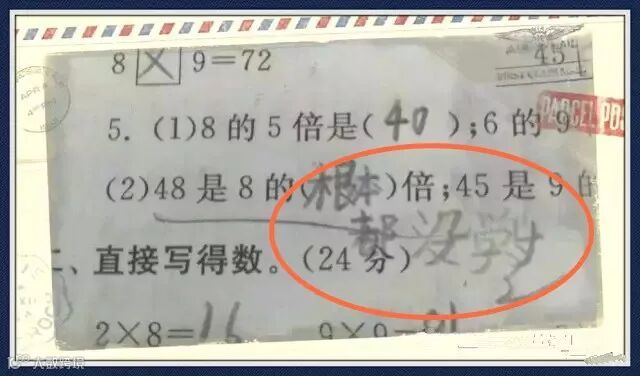 AIR MAIL
45
8 × 9=72
PARCEL POS
5. (1)8 的 5 倍是( 40 );6 的 9
(2)48 是 8 的(根本)倍;45 是 9 的
都没学
二、直接写得数。(24 分)
2
2×8=16 9×9=81
大数跨境